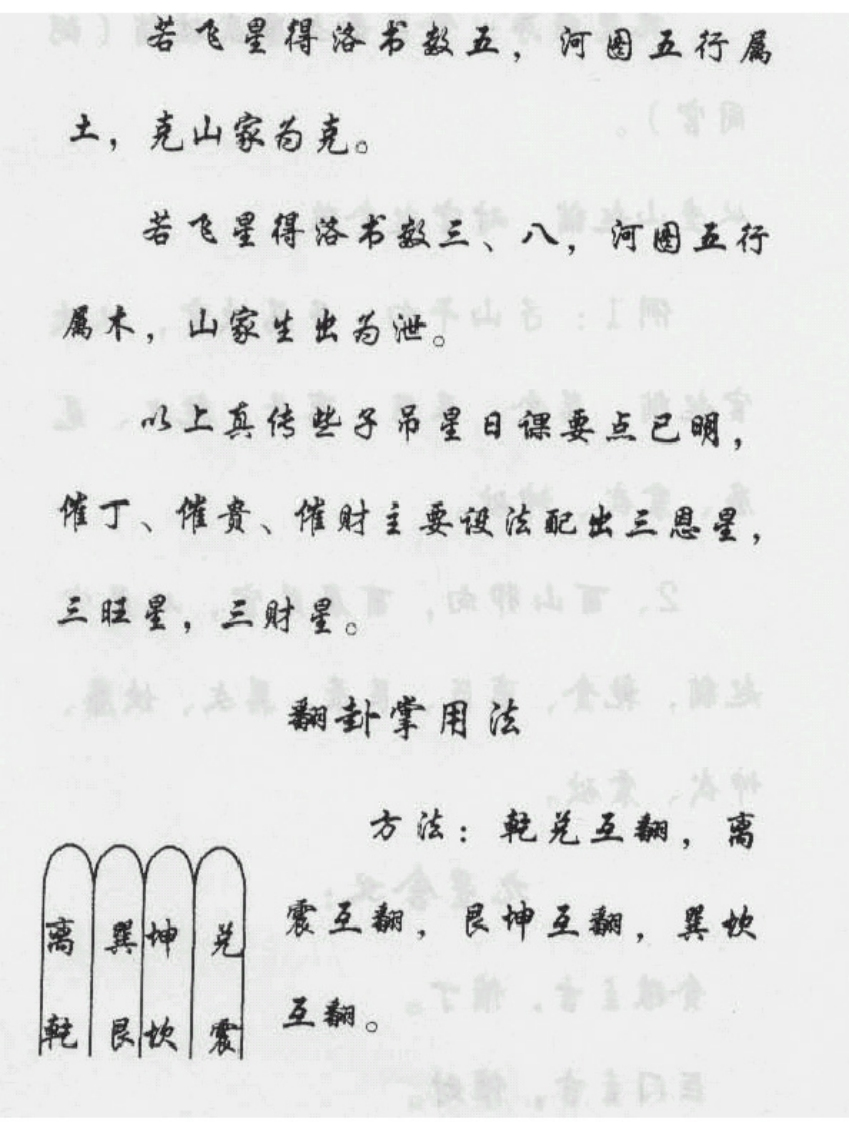 若飞星得洛书数五，河图五行属
土，克山家为克。
若飞星得洛书数三、八，河图五行
属木，山家生出为泄。
以上真传些子吊星日课要点已明，
催丁、催贵、催财主要设法配出三恩星，
三旺星，三财星。
翻卦掌用法
方法：乾兑互翻，离
震互翻，艮坤互翻，巽坎
互翻。
离 巽 坤 兑
乾 艮 坎 震